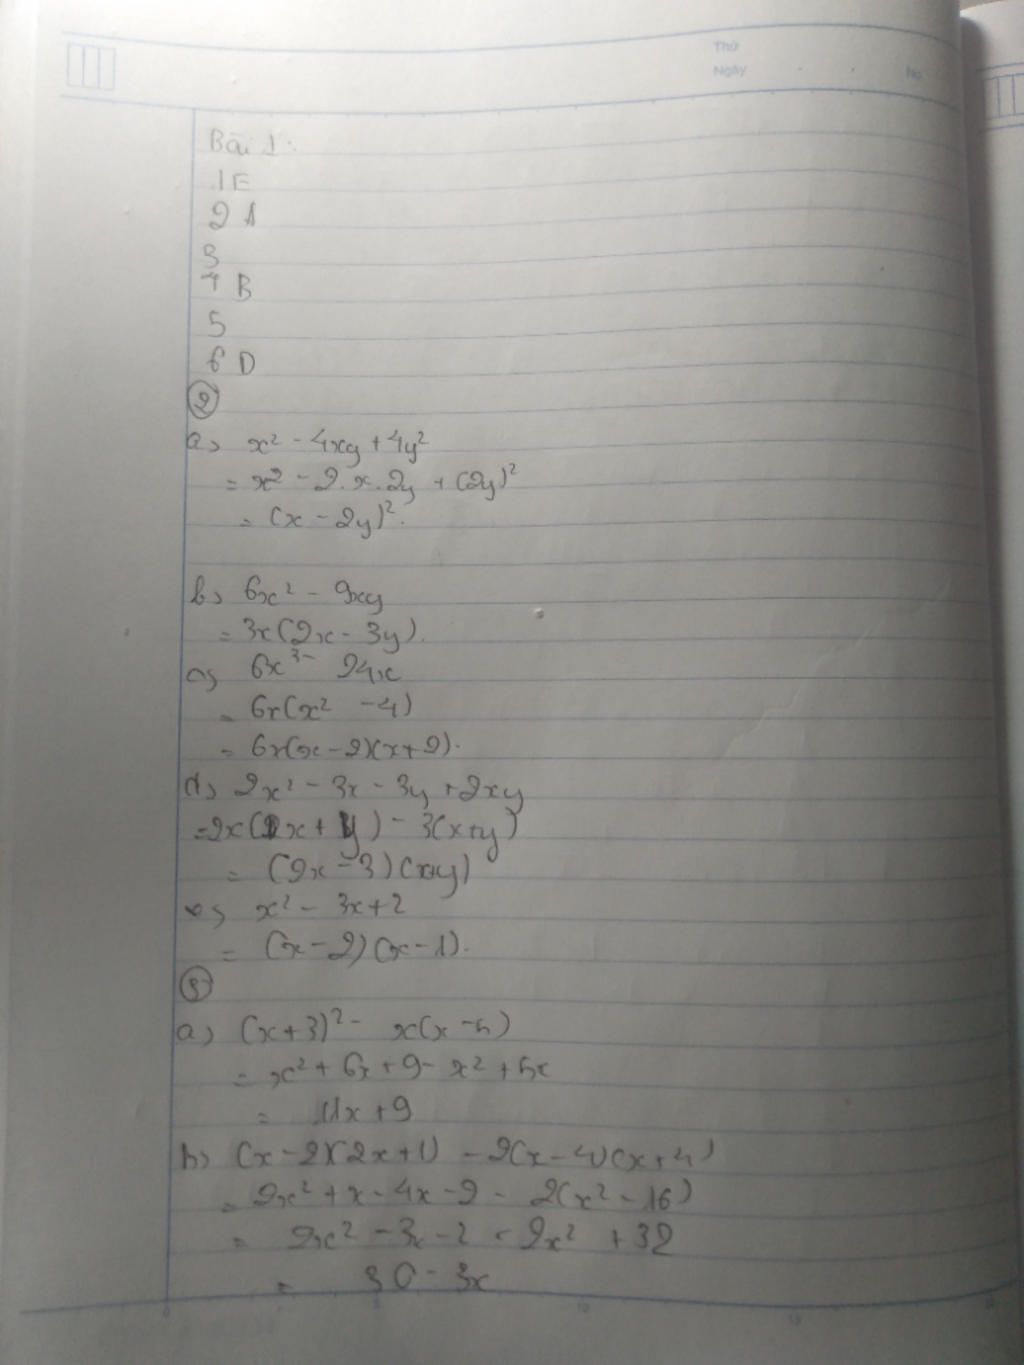 Thứ
Ngày
No
Bài 1:
1 E
2 A
3
4 B
5
6 D
②
a, x² - 4xy + 4y²
= x² - 2.x.2y + (2y)²
= (x - 2y)².
b, 6x² - 9xy
= 3x(2x - 3y).
c, 6x³ - 24x
= 6x(x² - 4)
= 6x(x - 2)(x + 2).
d, 2x² - 3x - 3y + 2xy
= 2x(x + y) - 3(x + y)
= (2x - 3)(x+y)
e, x² - 3x + 2
= (x - 2)(x - 1).
③
a) (x + 3)² - x(x - 5)
= x² + 6x + 9 - x² + 5x
= 11x + 9
b) (x - 2)(2x + 1) - 2(x - 4)(x + 4)
= 2x² + x - 4x - 2 - 2(x² - 16)
= 2x² - 3x - 2 - 2x² + 32
= 30 - 3x
0 5 10 15